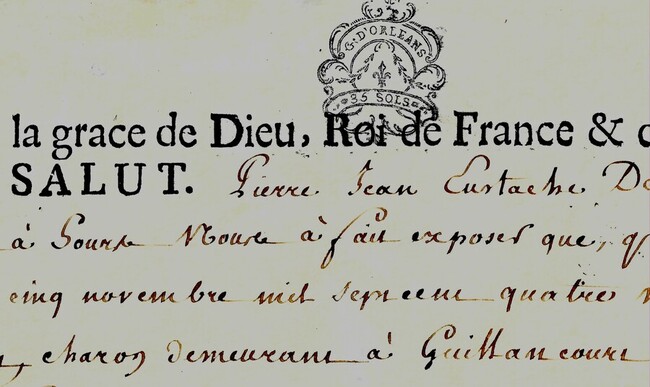 G. D'ORLEANS
35 SOLS
la grace de Dieu, Roi de France & d
SALUT. Pierre Jean Eustache De
à Nous à fait exposer que, q
cinq novembre mil sept cent quatre
charon demeurant à Guillancourt